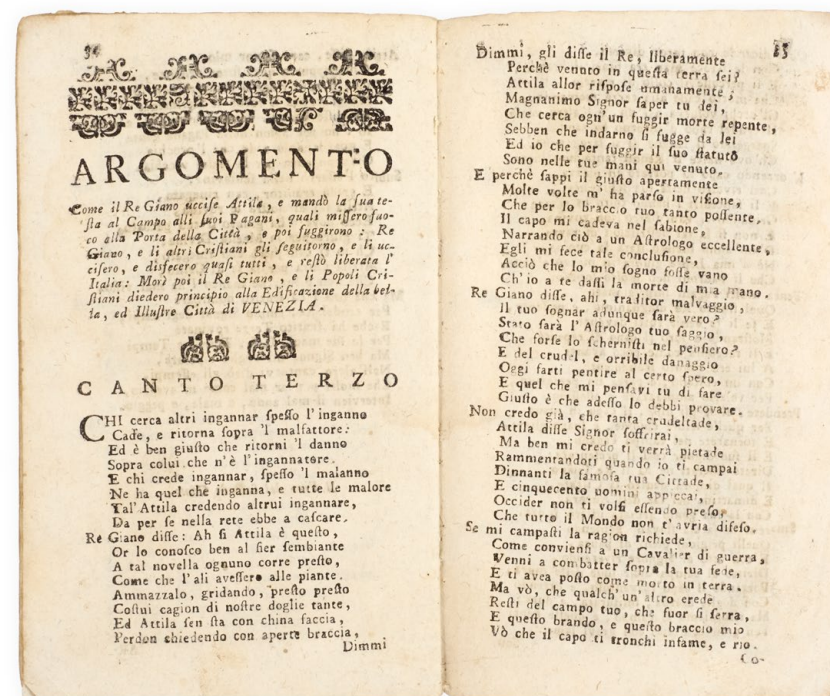 34
ARGOMENTO
Come il Re Giano uccise Attila, e mandò la sua te-
sta al Campo alli suoi Pagani, quali missero fuo-
co alla Porta della Città, e poi fuggirono: Re
Giano, e li altri Cristiani gli seguitorno, e li uc-
cisero, e disfecero quasi tutti, e restò liberata l'
Italia: Morì poi il Re Giano, e li Popoli Cri-
stiani diedero principio alla Edificazione della bel-
la, ed Illustre Città di VENEZIA.
CANTO TERZO
CHI cerca altri ingannar spesso l'inganno
Cade, e ritorna sopra 'l malfattore:
Ed è ben giusto che ritorni 'l danno
Sopra colui che n'è l'ingannatore.
E chi crede ingannar, spesso 'l malanno
Ne ha quel che inganna, e tutte le malore
Tal'Attila credendo altrui ingannare,
Da per se nella rete ebbe a cascare.
Re Giano disse: Ah si Attila è questo,
Or lo conosco ben al fier sembiante
A tal novella ognuno corre presto,
Come che l'ali avessero alle piante.
Ammazzalo, gridando, presto presto
Costui cagion di nostre doglie tante,
Ed Attila sen sta con china faccia,
Perdon chiedendo con aperte braccia,
Dimmi
35
Dimmi, gli disse il Re, liberamente
Perchè venuto in questa terra sei?
Attila allor rispose umanamente;
Magnanimo Signor saper tu dei,
Che cerca ogn'un fuggir morte repente,
Sebben che indarno si fugge da lei
Ed io che per fuggir il suo statutò
Sono nelle tue mani quì venuto.
E perchè sappi il giusto apertamente
Molte volte m'ha parso in visione,
Che per lo braccio tuo tanto possente,
Il capo mi cadeva nel sabione,
Narrando ciò a un Astrologo eccellente,
Egli mi fece tale conclusione,
Acciò che lo mio sogno fosse vano
Ch'io a te dassi la morte di mia mano.
Re Giano disse, ahi, traditor malvaggio,
Il tuo sognar adunque sarà vero?
Stato sarà l'Astrologo tuo saggio,
Che forse lo schernisti nel pensiero?
E del crudel, e orribile danaggio
Oggi farti pentire al certo spero,
E quel che mi pensavi tu di fare
Giusto è che adesso lo debbi provare.
Non credo già, che tanta crudeltade,
Attila disse Signor soffrirai,
Ma ben mi credo ti verrà pietade
Rammentandoti quando io ti campai
Dinnanti la famosa tua Cittade,
E cinquecento uomini appiccai,
Occider non ti volsi essendo preso,
Che tutto il Mondo non t'avria difeso.
Se mi campasti la ragion richiede,
Come conviensi a un Cavalier di guerra,
Venni a combatter sopra la tua fede,
E ti avea posto come morto in terra.
Ma vò, che qualch'un'altro erede
Resti del campo tuo, che fuor si serra,
E questo brando, e questo braccio mio
Vò che il capo ti tronchi infame, e rio.
Co-